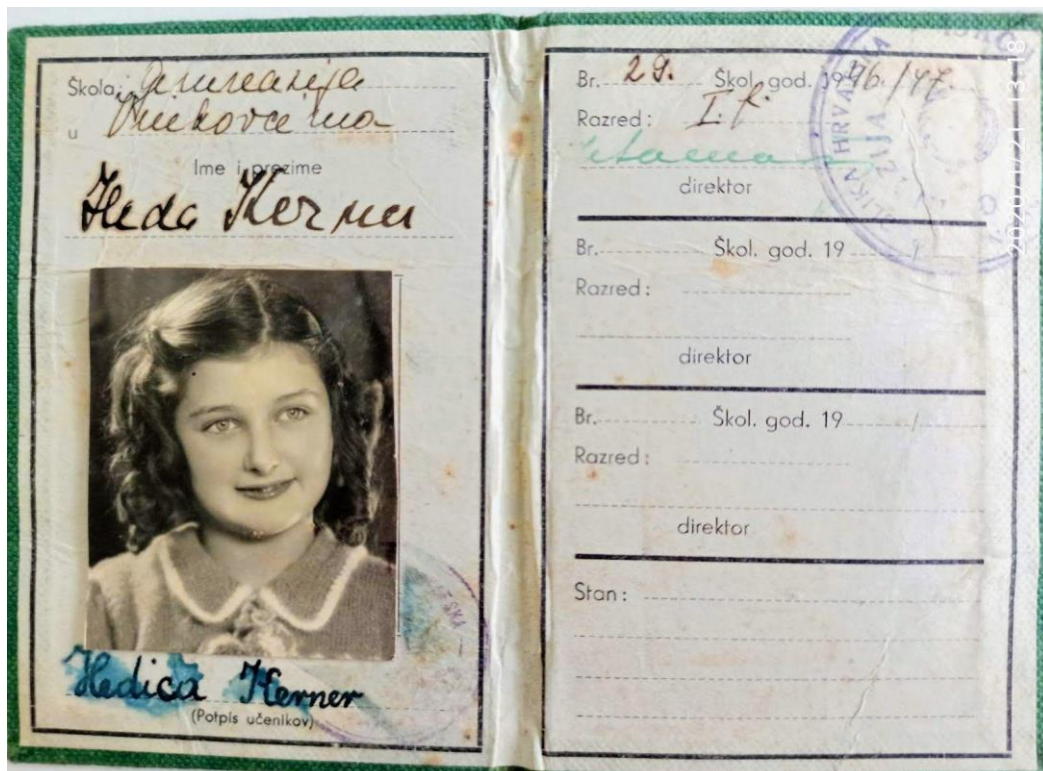 Škola: Gimnazija
u Vinkovcima
Ime i prezime
Heda Kerner
Hedica Kerner
(Potpis učenikov)
Br. 29. Škol. god. 1946./47.
Razred: I. f.
direktor
Br. Škol. god. 19 /
Razred:
direktor
Br. Škol. god. 19 /
Razred:
direktor
Stan: